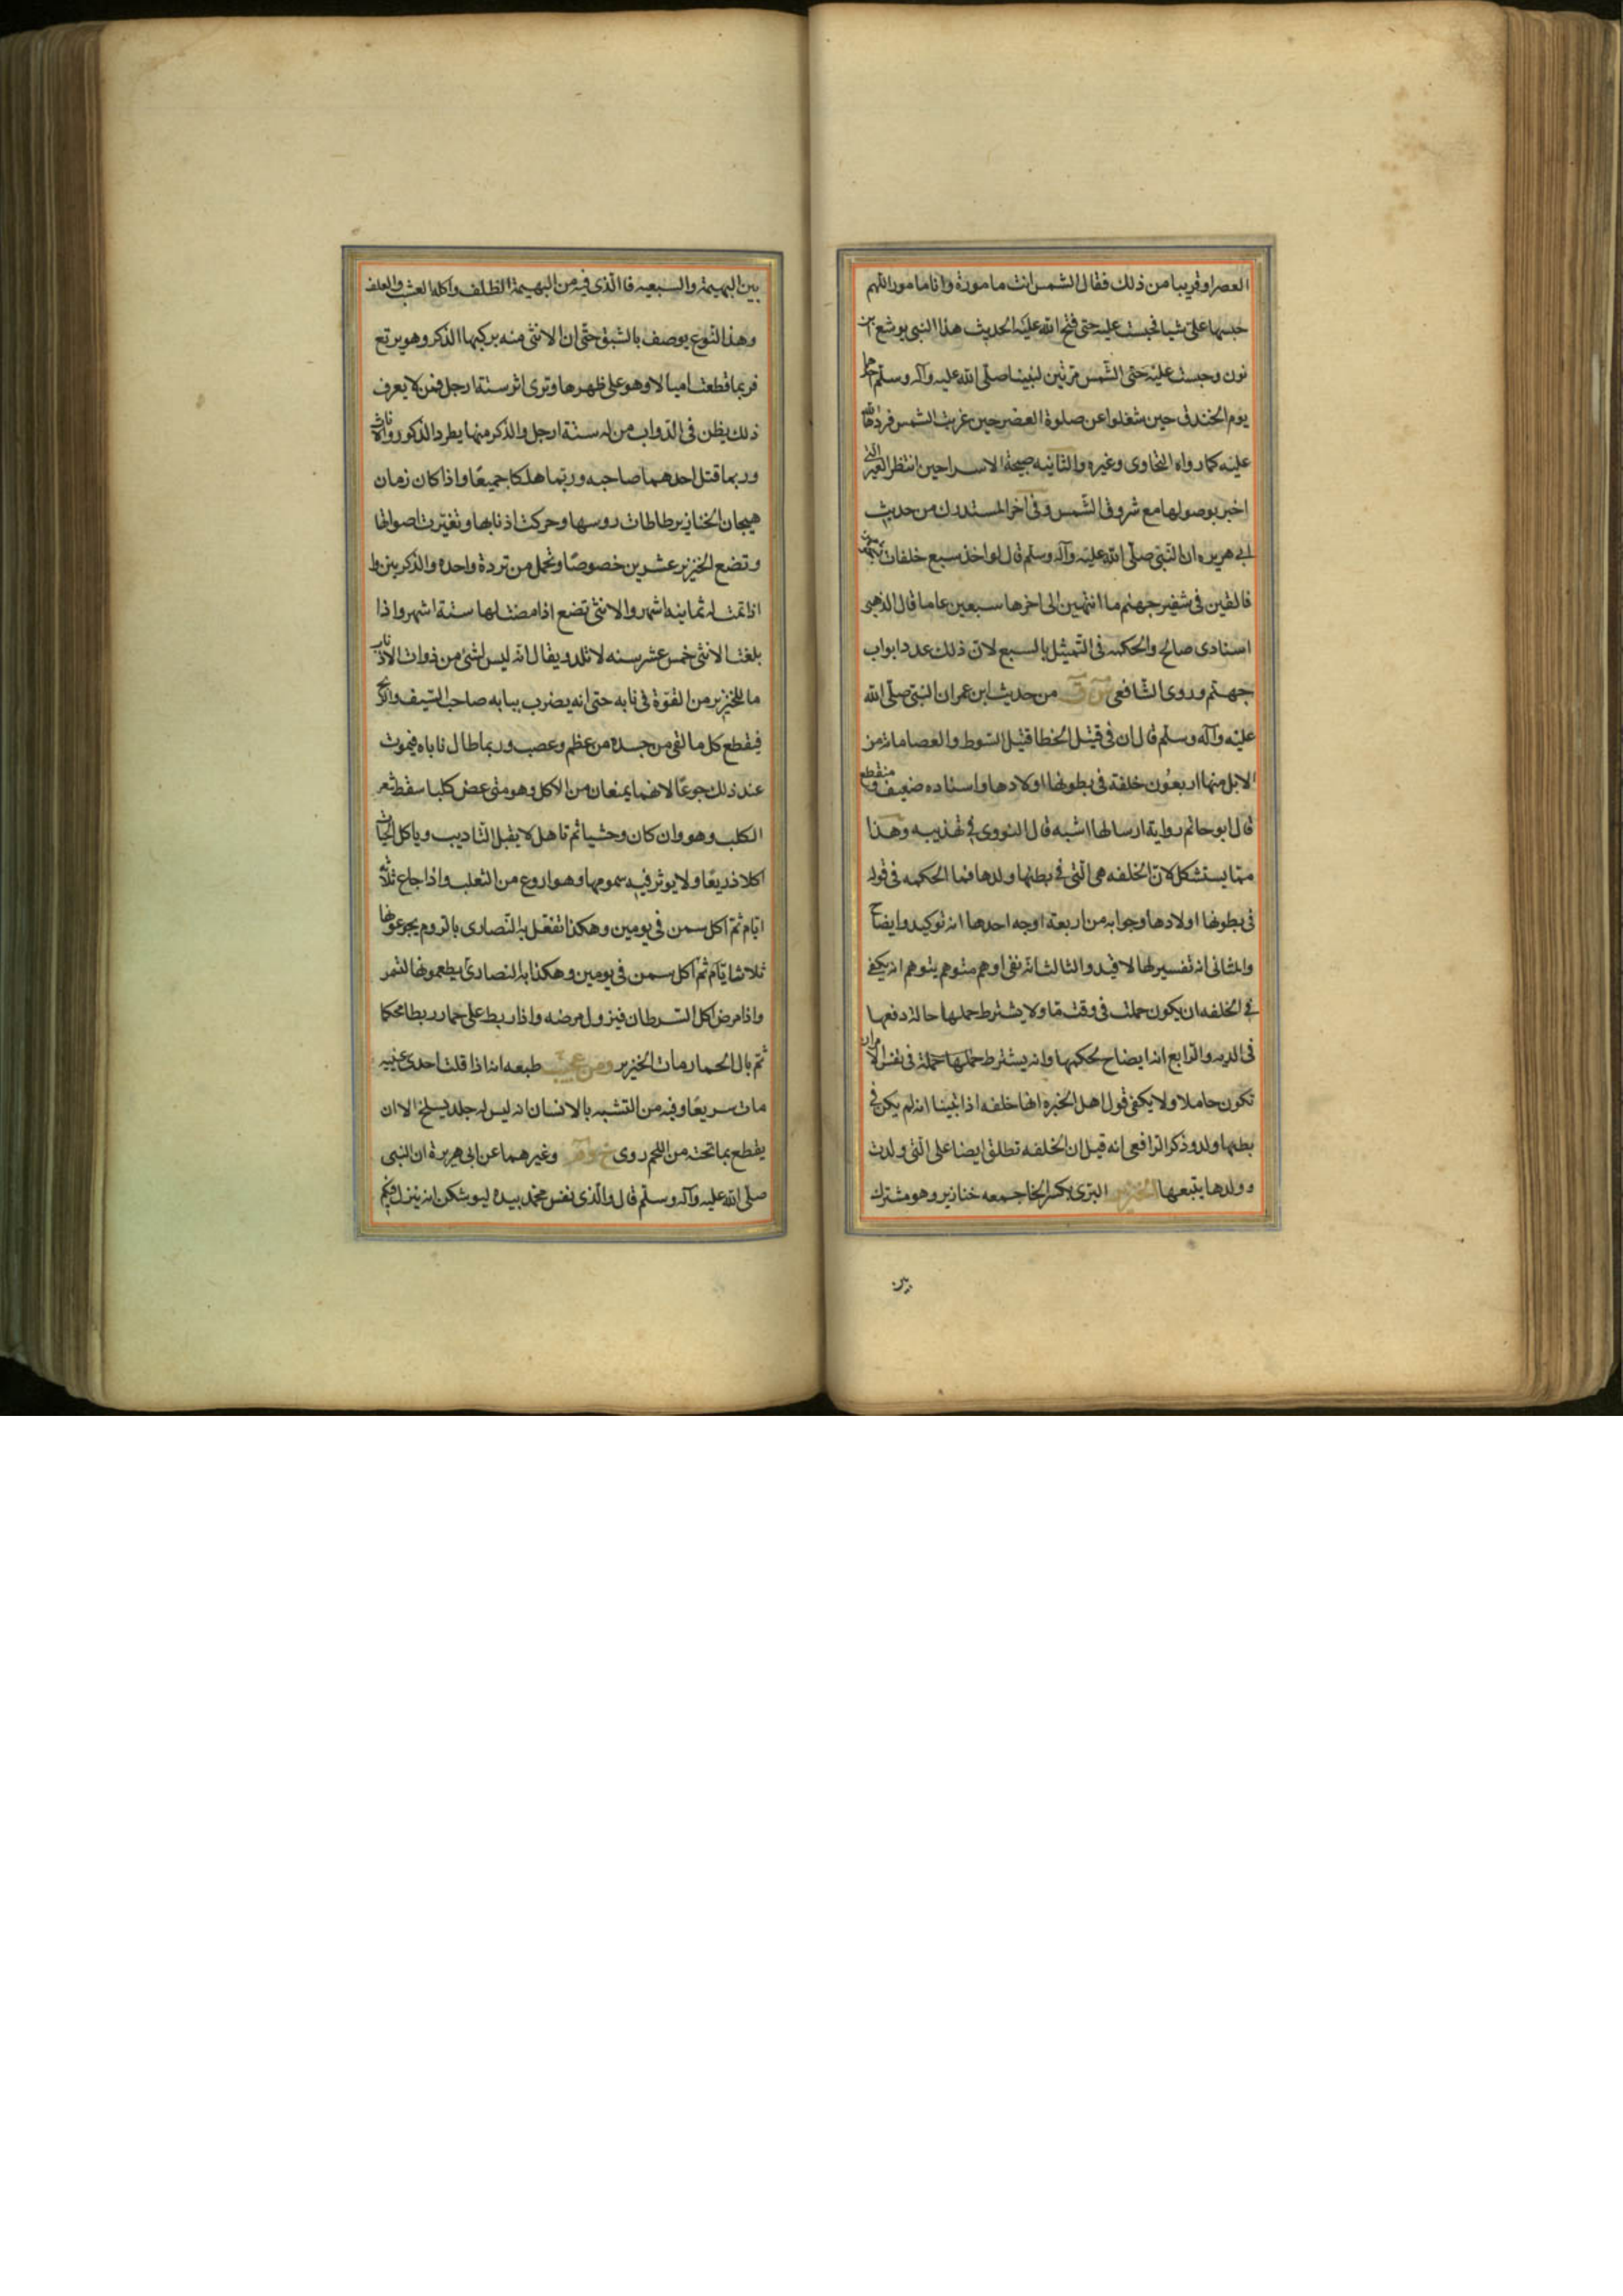 العصر او قريبا من ذلك فقال للشمس انت مامورة وانا مامور اللهم
حبسها على شيا فحبست عليه حتى فتح الله عليه الحديث هذا النبي يوشع بن
نون وحبست عليه حتى الشمس مرتين لنبينا صلى الله عليه وآله وسلم
يوم الخندق حين شغلوا عن صلوة العصر حين غربت الشمس فردها الله
عليه كما رواه الطحاوى وغيره والثانيه صبيحة الاسرا حين انتظر العير التى
اخبر بوصولها مع شروق الشمس وفى اخر المستدرك من حديث
ابى هريره ان النبى صلى الله عليه وآله وسلم قال لو اخذ سبع خلفات
فالقين فى شفير جهنم ما انتهين الى اخرها سبعين عاما قال الذهبى
اسنادى صالح والحكمه فى التمثيل بالسبع لان ذلك عدد ابواب
جهنم وروى الشافعى من حديث ابن عمر ان النبى صلى الله
عليه وآله وسلم قال ان فى قتيل الخطا قتيل السوط والعصا مائة من
الابل منها اربعون خلفة فى بطونها اولادها واسناده ضعيف ومنقطع
قال ابو حاتم رواية ارسالها اشبه قال النووى فى تهذيبه وهذا
مما يستشكل لان الخلفه هى التى فى بطنها ولدها فما الحكمه فى قوله
فى بطونها اولادها وجوابه من اربعة اوجه احدها انه توكيد وايضاح
والثانى انه تفسير لها لا قيد والثالث انه نفى اوهم متوهم يتوهم انه يكفى
فى الخلفه ان يكون حملت فى وقت ما ولا يشترط حملها حالة دفعها
فى الديه والرابع انه ايضاح لحكمها وانه يشترط حملها فى نفس الامر ان
تكون حاملا ولا يكفى قول اهل الخبره انها خلفه اذا تبينا انه لم يكن فى
بطنها ولد وذكر الرافعى انه قيل ان الخلفه تطلق ايضا على التى ولدت
وولدها يتبعها الخنزير البرى بكسر الخا جمعه خنازير وهو مشترك
بين
بين البهيمة والسبعيه فا الذى فيه من البهيمة الظلف واكله العشب والعلف
وهذا النوع يوصف بالشبق حتى ان الانثى منه يركبها الذكر وهو يرتع
فربما قطعت اميالا وهو على ظهرها وترى اثر ستة ارجل فمن لا يعرف
ذلك يظن فى الدواب من له ستة ارجل والذكر منها يطرد الذكور والاناث
وربما قتل احدهما صاحبه وربما هلكا جميعا واذا كان زمان
هيجان الخنازير طاطات روسها وحركت اذنابها وتغيرت اصواتها
وتضع الخنزير عشرين خصوصا وتحمل من نزوة واحده والذكر ينزط
اذا تمت له ثمانيه اشهر والانثى تضع اذا مضت لها ستة اشهر واذا
بلغت الانثى خمس عشر سنه لا تلد ويقال انه ليس لشئ من ذوات الاذناب
ما للخنزير من القوة فى نابه حتى انه يضرب بنابه صاحب السيف والرمح
فيقطع كل ما لقى من جسده من عظم وعصب وربما طال ناباه فيموت
عند ذلك جوعا لانهما يمنعان من الاكل وهو متى عض كلبا سقط شعر
الكلب وهو وان كان وحشيا ثم تاهل لا يقبل التاديب وياكل الحيات
اكلا ذريعا ولا يوثر فيه سمومها وهو اروغ من الثعلب واذا جاع ثلاثة
ايام ثم اكل سمن فى يومين وهكذا تفعل به النصارى بالروم يجوعونها
ثلاثة ايام ثم اكل سمن فى يومين وهكذا به النصارى يطعمونها لتمر
واذا مرض اكل السرطان فيزول مرضه واذا ربط على حمار ربطا محكما
ثم بال الحمار مات الخنزير ومن عجيب طبعه انه اذا قلت احدى عينيه
مات سريعا وفيه من التشبه بالانسان انه ليس له جلد يسلخ الا ان
يقطع بما تحته من اللحم روى خ وم وغيرهما عن ابى هريرة ان النبى
صلى الله عليه وآله وسلم قال والذى نفس محمد بيده ليوشكن ان ينزل فيكم